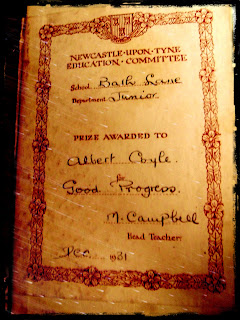 NEWCASTLE-UPON-TYNE
EDUCATION COMMITTEE
School Bath Lane
Department Junior
PRIZE AWARDED TO
Albert Coyle.
for
Good Progress.
M. Campbell
Head Teacher.
Dec. 1931